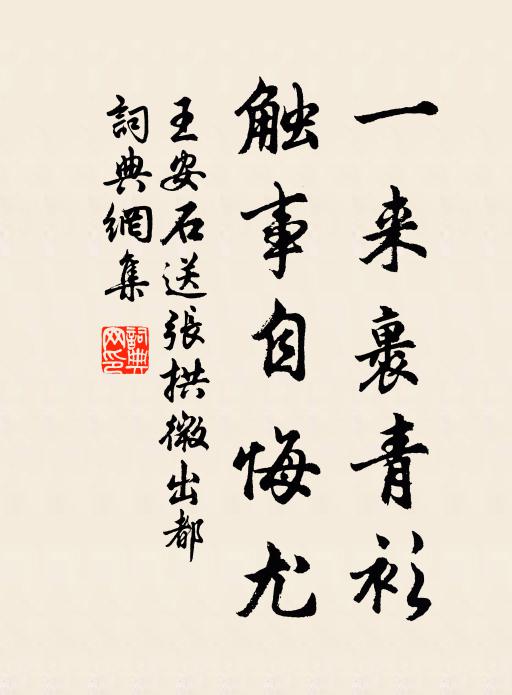 一来裹青衫
触事自悔尤
王安石送張拱微出都
詞典網集
詞典网印